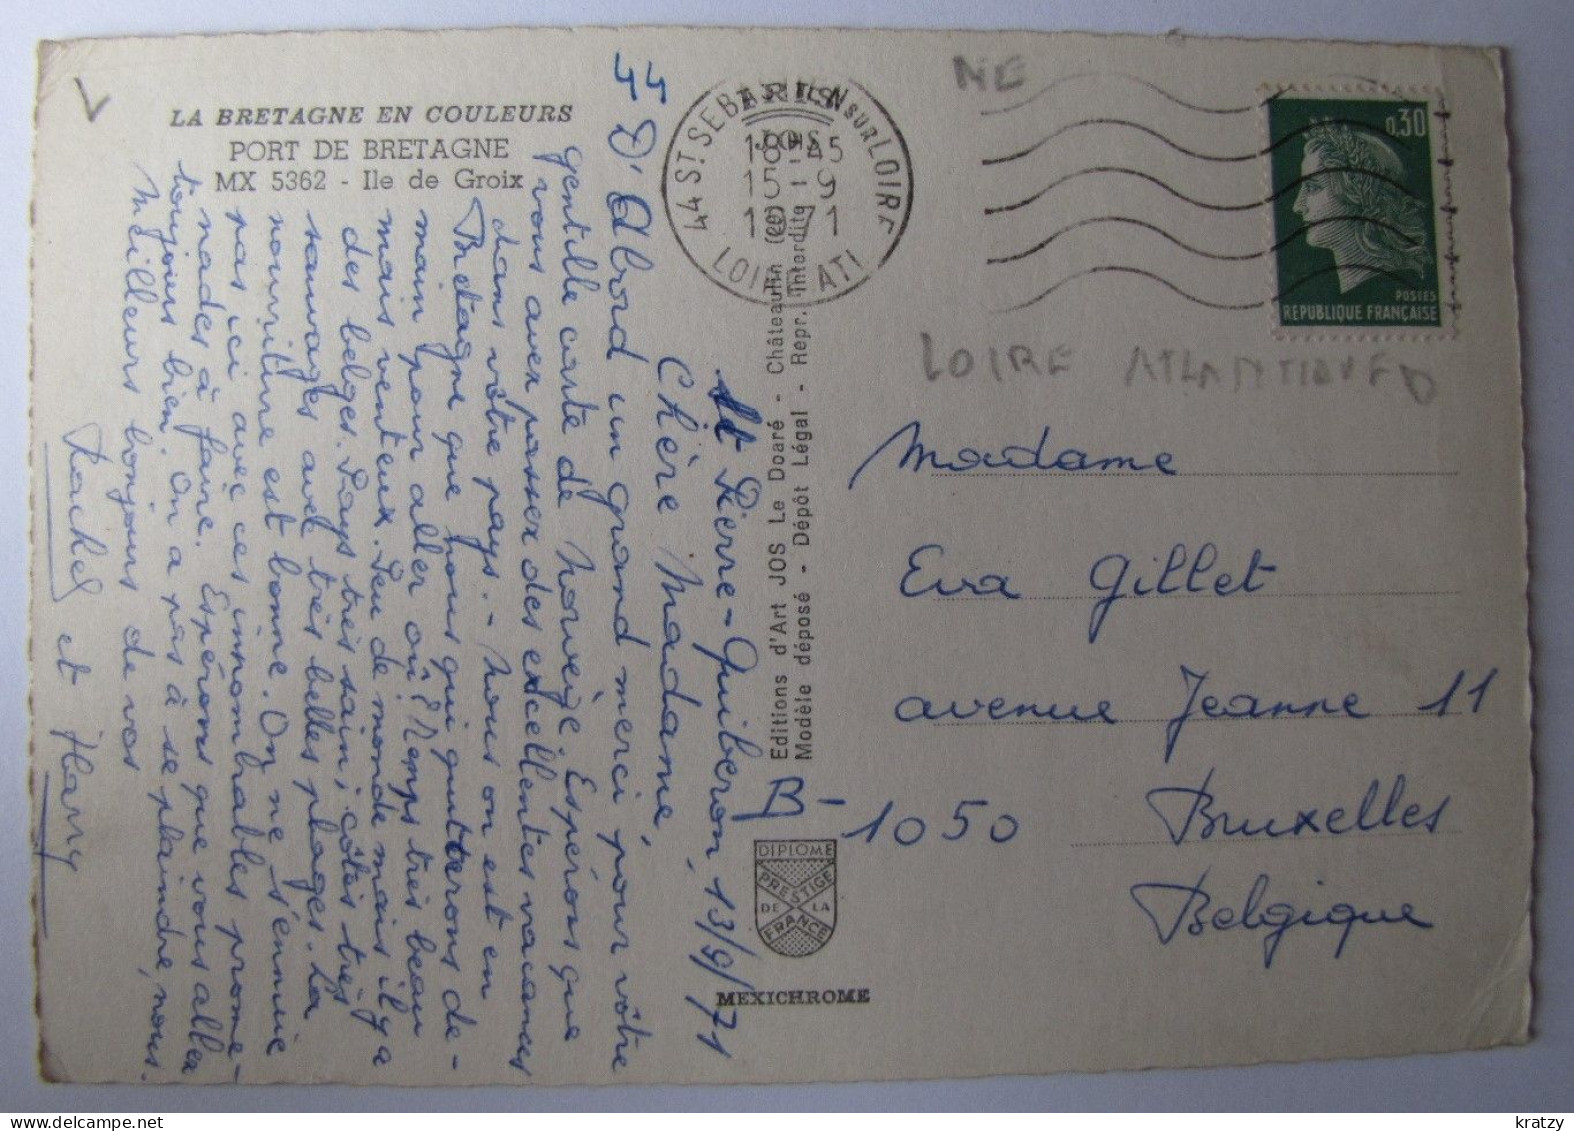 LA BRETAGNE EN COULEURS
PORT DE BRETAGNE
MX 5362 - Ile de Groix
44
44 ST SEBASTIEN SUR LOIRE
18-45
15-9
1971
LOIRE ATL
NE
0,30
POSTES
REPUBLIQUE FRANÇAISE
LOIRE ATLANTIQUE
St Pierre-Quiberon, 13/9/71
Chère Madame,
D'Abord un grand merci pour vôtre
gentille carte de Norvège. Espérons que
vous avez passer des excellentes vacances
dans vôtre pays. - Nous on est en
Bretagne que nous qui quitterons de-
main pour aller où? Temps très beau
mais venteux. Peu de monde mais il y a
des belges. Pays très sain; côtes très
sauvages avec très belles plages. La
nourriture est bonne. On ne s'ennuie
pas ici avec ces innombrables prome-
nades à faire. Espérons que vous allez
toujours bien. On a pas à se plaindre, nous.
Meilleurs bonjours de vos
Rachel et Harry
Editions d'Art JOS Le Doaré - Châteaulin (29)
Modèle déposé - Dépôt Légal - Repr. Interdite
Madame
Eva Gillet
avenue Jeanne 11
B-1050 Bruxelles
Belgique
DIPLOME
PRESTIGE
DE LA
FRANCE
MEXICHROME
kratzy